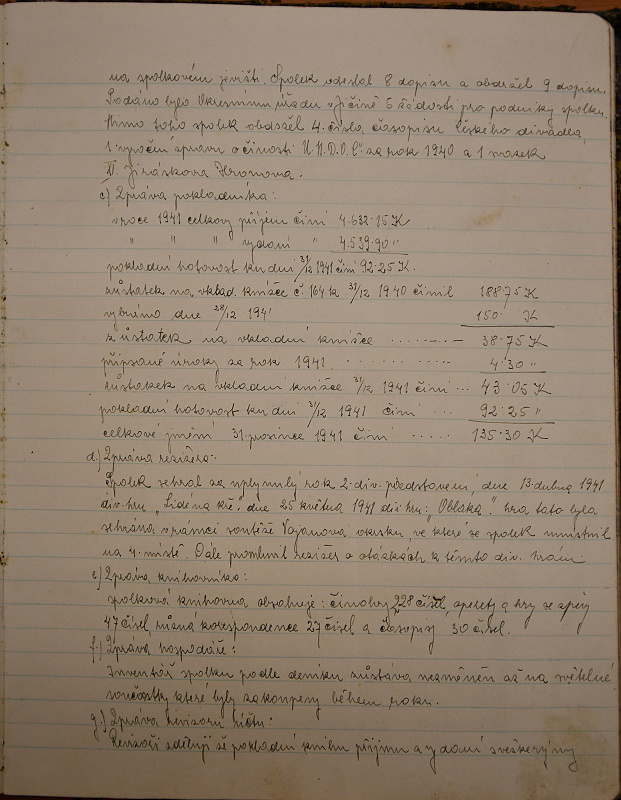 na spolkovém jevišti. Spolek odeslal 8 dopisů a obdržel 9 dopisů.
Podáno bylo Okresnímu úřadu v Jičíně 5 žádostí pro podniky spolku.
Mimo toho spolek obdržel 4. čísla časopisu Českého divadla,
1 výroční zprávu o činosti Ú.M.D.O.Č. za rok 1940 a 1 svazek
II. Jiráskova Hronova.
c) Zpráva pokladníka:
v roce 1941 celkový příjem činí 4.632·15 K
" " " vydání " 4.539·90 "
pokladní hotovost ku dni 31/12 1941 činí 92·25 K.
zůstatek na vklad. knížce č. 164 k 31/12 1940 činil 188·75 K
vybráno dne 28/12 1941 150· K
zůstatek na vkladní knížce ........ – 38·75 K
připsané úroky za rok 1941 .......... 4·30 "
zůstatek na vkladní knížce 31/12 1941 činí ... 43·05 K
pokladní hotovost ku dni 31/12 1941 činí ... 92·25 "
celkové jmění 31 prosince 1941 činí ..... 135·30 K
d.) Zpráva režiséra:
Spolek sehrál za uplynulý rok 2 div. představení, dne 13 dubna 1941
div. hru „Lidé na kře", dne 25 května 1941 div. hru: „Oblaka". hra tato byla
sehrána v rámci soutěže Vojanova okrsku, ve které se spolek umístnil
na 4. místě. Dále promluvil režisér o otázkách k těmto div. hrám.
e) Zpráva knihovníka:
spolková knihovna obsahuje: činohry 228 čísel, operety a hry se zpěvy
47 čísel, různá korespondence 27 čísel a časopisy 30 čísel.
f.) Zpráva hospodáře:
Inventář spolku podle deníku zůstává nezměněn až na světelné
součástky které byly zakoupeny během roku.
g.) Zpráva revisorů účtů:
Revisoři sdělují že pokladní knihu příjmů a vydání